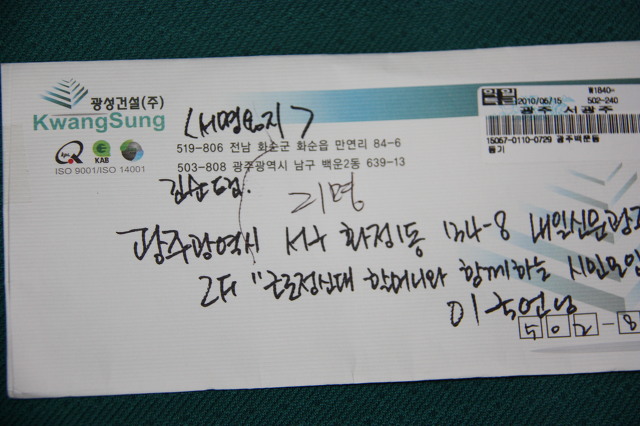 광성건설(주)
KwangSung
KAB
ISO 9001/ISO 14001
<서명용지>
519-806 전남 화순군 화순읍 만연리 84-6
503-808 광주광역시 남구 백운2동 639-13
₩1840-
2010/06/15 502-240
광주 서광주
15067-0110-0729 광주백운동
등기
김순덕.
21명
광주광역시 서구 화정1동 134-8 내일신문광주
2F "근로정신대 할머니와 함께하는 시민모임
이국언님
502-8